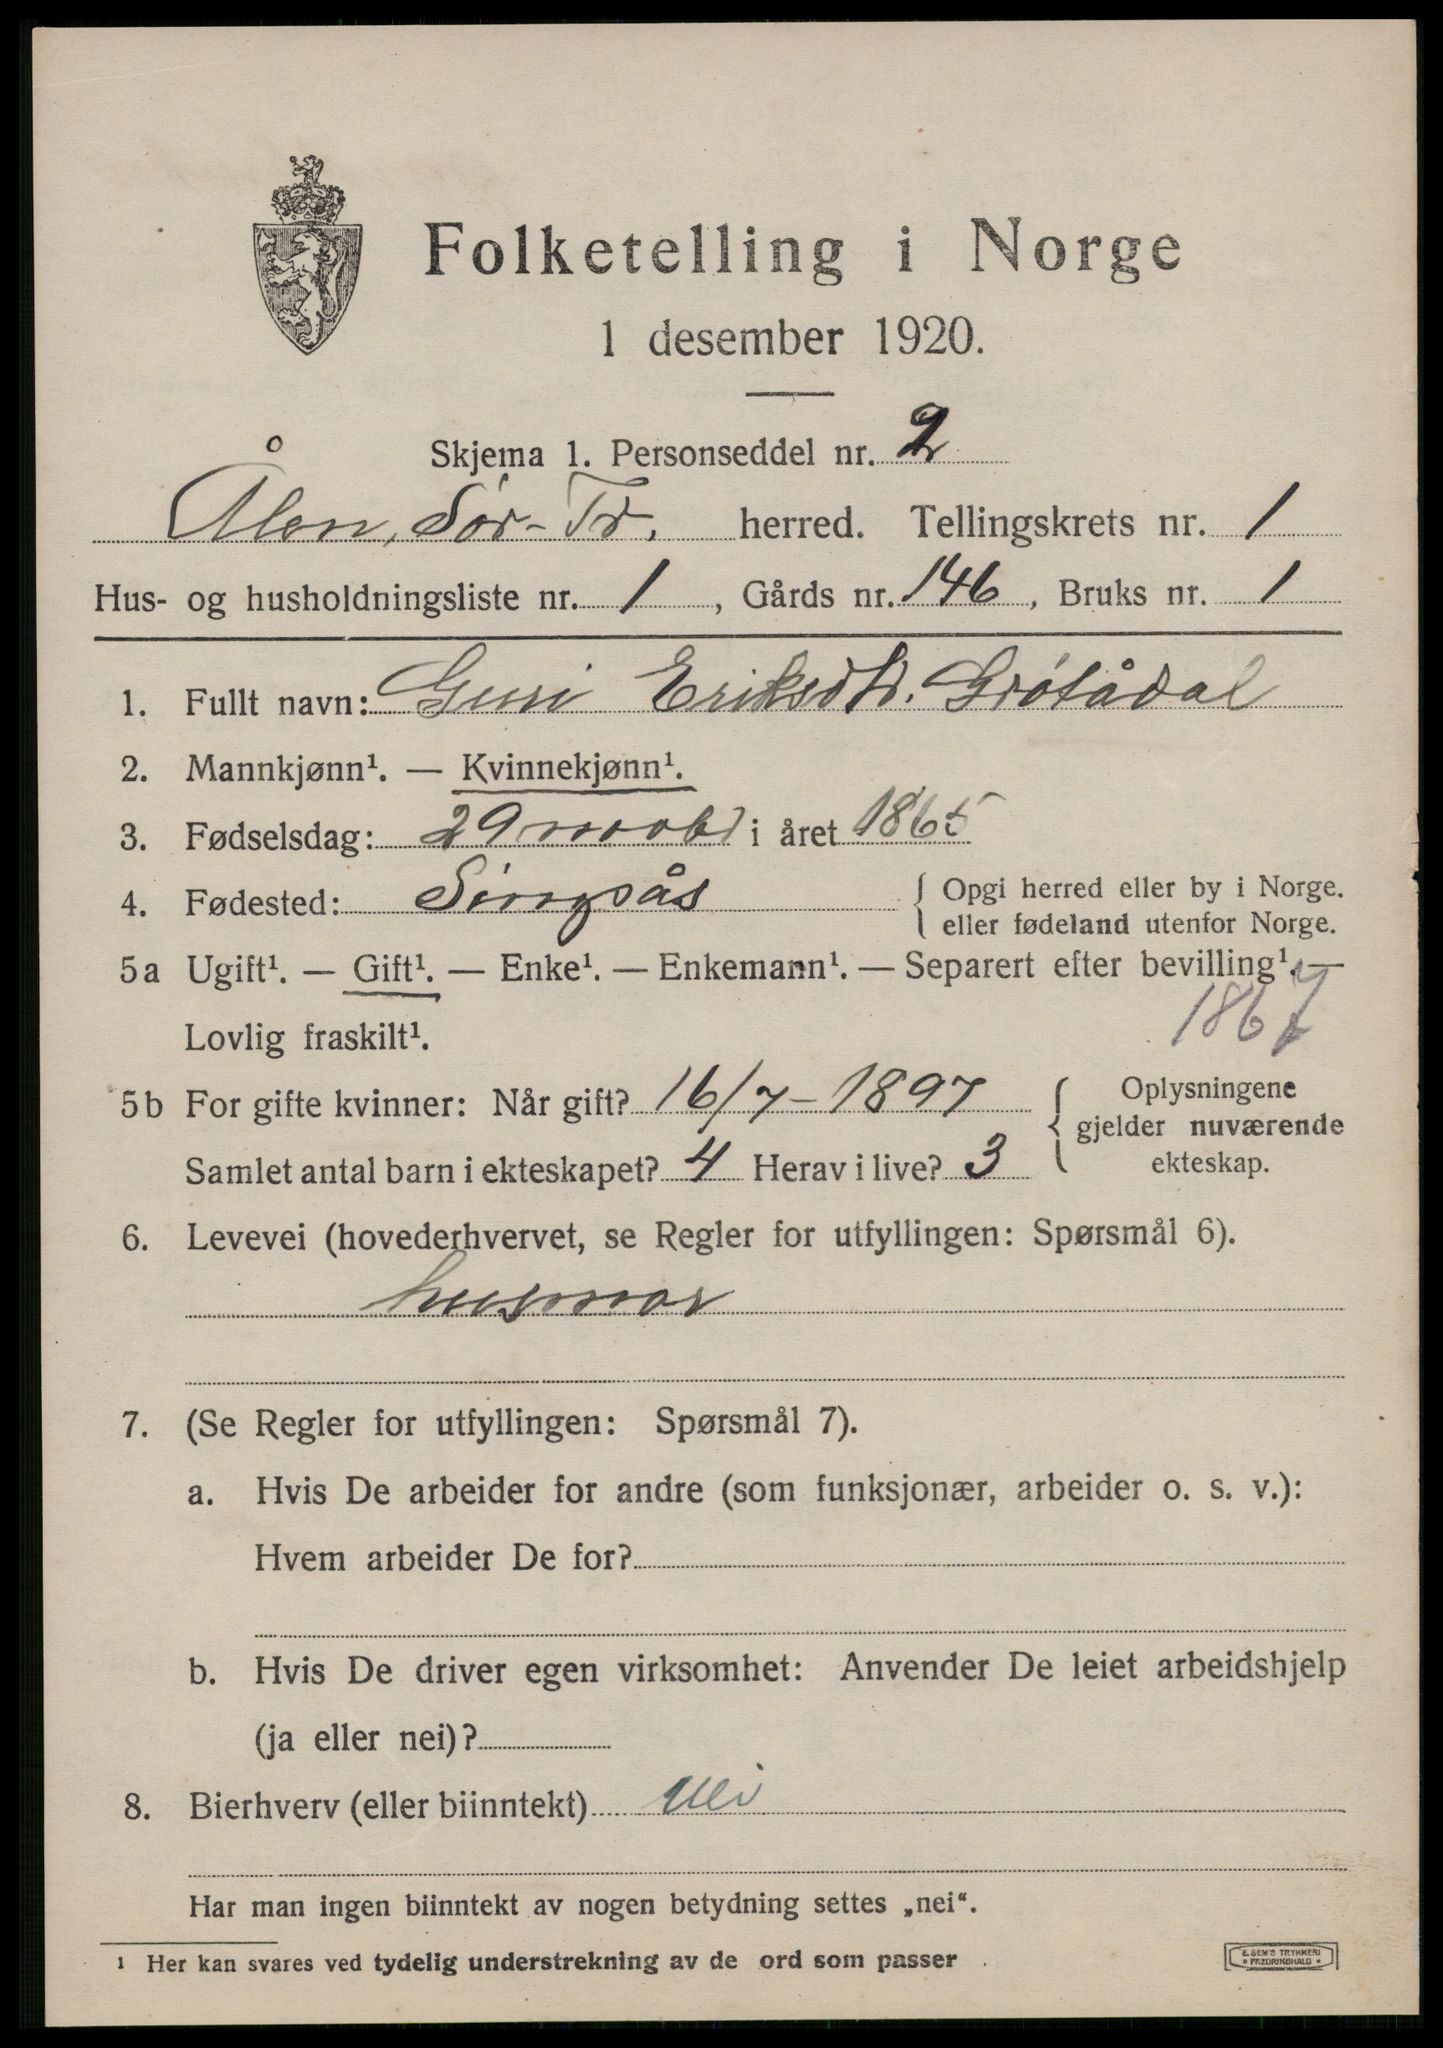 Folketelling i Norge
1 desember 1920.
Skjema 1. Personseddel nr. 2
Ålen, Sør-Tr. herred. Tellingskrets nr. 1
Hus- og husholdningsliste nr. 1, Gårds nr. 146, Bruks nr. 1
1. Fullt navn: Guri Eriksdtr. Grøtådal
2. Mannkjønn¹. — Kvinnekjønn¹.
3. Fødselsdag: 29 novbr i året 1865
4. Fødested: Singsås { Opgi herred eller by i Norge.
eller fødeland utenfor Norge.
5a Ugift¹. — Gift¹. — Enke¹. — Enkemann¹. — Separert efter bevilling¹. —
Lovlig fraskilt¹. 1867
5b For gifte kvinner: Når gift? 16/7-1897 { Oplysningene
gjelder nuværende
Samlet antal barn i ekteskapet? 4 Herav i live? 3 ekteskap.
6. Levevei (hovederhvervet, se Regler for utfyllingen: Spørsmål 6).
husmor
7. (Se Regler for utfyllingen: Spørsmål 7).
a. Hvis De arbeider for andre (som funksjonær, arbeider o. s. v.):
Hvem arbeider De for?
b. Hvis De driver egen virksomhet: Anvender De leiet arbeidshjelp
(ja eller nei)?
8. Bierhverv (eller biinntekt) Nei
Har man ingen biinntekt av nogen betydning settes „nei“.
¹ Her kan svares ved tydelig understrekning av de ord som passer
E. SEM'S TRYKKERI
FREDRIKSHALD